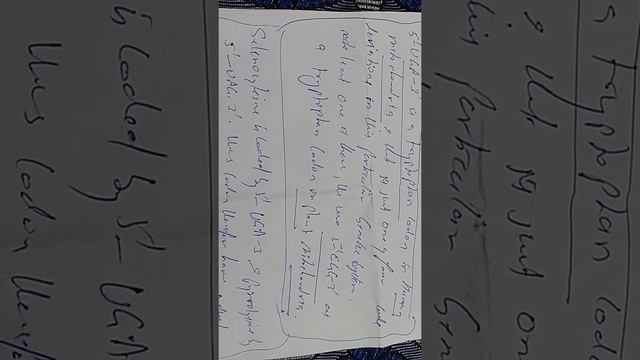 5'-UGA-3' is a tryptophan codon in human
mitochondria, & that is just one of four
deviations in this particular Genetic System.
note that one of them, the use 5'-CGG-3' as
a tryptophan codon in plant mitochondria.
Selenocysteine is coded by 5'-UGA-3, & pyrrolysine by
5'-UAG-3'. Thus codon therefore have